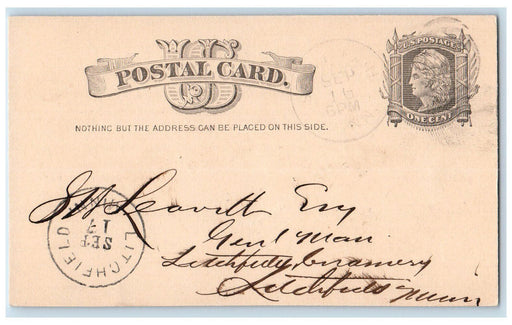 U.S. POSTAGE
US
POSTAL CARD.
SEP
16
6PM
ONE CENT
NOTHING BUT THE ADDRESS CAN BE PLACED ON THIS SIDE.
Leavitt Esq
Gen'l Man
Litchfield Creamery
Litchfield
Minn
LITCHFIELD MINN.
SEP
17